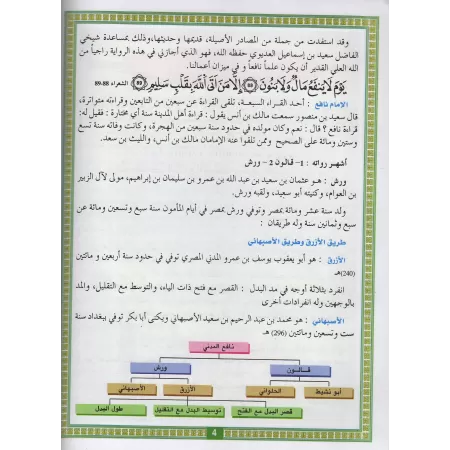 وقد استفدت من جملة من المصادر الأصيلة، قديمها وحديثها،وذلك بمساعدة شيخي
الفاضل سعيد بن إسماعيل العديوي حفظه الله، فهو الذي أجازني في هذه الرواية راجياً من
الله العلي القدير أن يكون علماً نافعاً و في ميزان أعمالنا.
يَوْمَ لَا يَنفَعُ مَالٌ وَلَا بَنُونَ (88) إِلَّا مَنْ أَتَى اللَّهَ بِقَلْبٍ سَلِيمٍ (89) الشعراء 88-89
الإمام نافع : أحد القراء السبعة، تلقى القراءة عن سبعين من التابعين وقراءته متواترة،
قال سعيد بن منصور سمعت مالك بن أنس يقول : قراءة أهل المدينة سنة أي مختارة : فقيل له:
قراءة نافع ؟ قال : نعم وكان مولده في حدود سنة سبعين من الهجرة، وكانت وفاته سنة تسع
وستين ومائة على الصحيح وممن تلقوا عنه الإمامان مالك بن أنس، والليث بن سعد.
أشهر رواته : 1- قالون 2 - ورش
ورش : هو عثمان بن سعيد بن عبد الله بن عمرو بن سليمان بن إبراهيم، مولى لآل الزبير
بن العوام، وكنيته أبو سعيد، ولقبه ورش.
ولد سنة عشر ومائة بمصر وتوفي ورش بمصر في أيام المأمون سنة سبع وتسعين ومائة عن
سبع وثمانين سنة وله طريقان :
طريق الأزرق وطريق الأصبهاني
الأزرق : هو أبو يعقوب يوسف بن عمرو المدني المصري توفي في حدود سنة أربعين و مائتين
(240)هـ
انفرد بثلاثة أوجه في مد البدل : القصر مع فتح ذات الياء، والتوسط مع التقليل، والمد
بالوجهين وله انفرادات أخرى
الأصبهاني : هو محمد بن عبد الرحيم بن سعيد الأصبهاني ويكنى أبا بكر توفي ببغداد سنة
ست وتسعين ومائتين (296) هـ
نافع المدني
قالون ورش
أبو نشيط الحلواني الأزرق الأصبهاني
قصر البدل مع الفتح توسيط البدل مع التقليل طول البدل
4